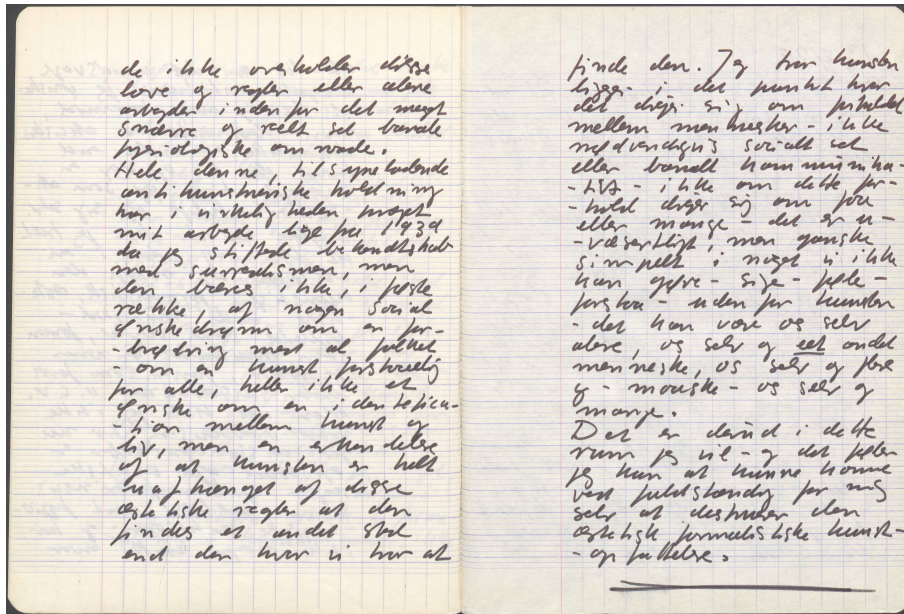 de ikke overholder disse
love og regler eller alene
arbejder inden for det meget
snævre og rent set banale
fysiologiske område.
Hele denne, tilsyneladende
antikunstneriske holdning
har i virkeligheden præget
mit arbejde lige fra 1939
da jeg stiftede bekendtskab
med surrealismen, men
den bæres ikke, i første
række, af nogen social
ønskedrøm om en for-
-bredning mest at folket
- om en kunst forståelig
for alle, heller ikke et
ønske om en identifica-
-tion mellem kunst og
liv, men en erkendelse
af at kunsten er helt
uafhænget af disse
æstetiske regler at den
findes et andet sted
end den hvor vi tror at
finde den. Jeg tror kunsten
ligger i det punkt hvor
det drejer sig om forholdet
mellem mennesker - ikke
nødvendigvis socialt set
eller banalt kommunika-
-tivt - ikke om dette for-
-hold drejer sig om faa
eller mange - det er u-
-væsentligt, men ganske
simpelt i noget vi ikke
kan gøre - sige - føle -
forstaa - uden for kunsten
- det kan være os selv
alene, os selv og eet andet
menneske, os selv og flere
og - maaske - os selv og
mange.
Det er derud i dette
rum jeg vil - og det føler
jeg kun at kunne komme
ved fuldstændig for mig
selv at destruere den
æstetisk formalistiske kunst-
-opfattelse.